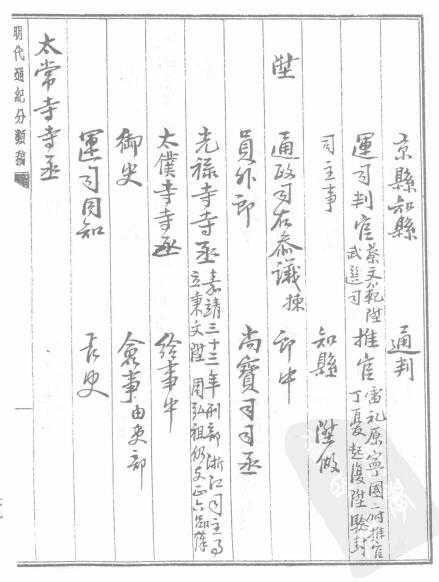 京縣知縣　通判
運司判官蔡文範陞武選司　推官雷礼原寧國府推官丁憂起復陞驗封
司主事　知縣　陞做
陞　通政司右參議　郎中
員外郎　尚寶司司丞
光祿寺寺丞嘉靖三十三年刑部浙江司主事　秉文陞　周弘祖仍支正六品俸
太僕寺寺丞　給事中
御史　僉事由吏部
運司同知　長史
太常寺寺丞
明代通紀分類稿